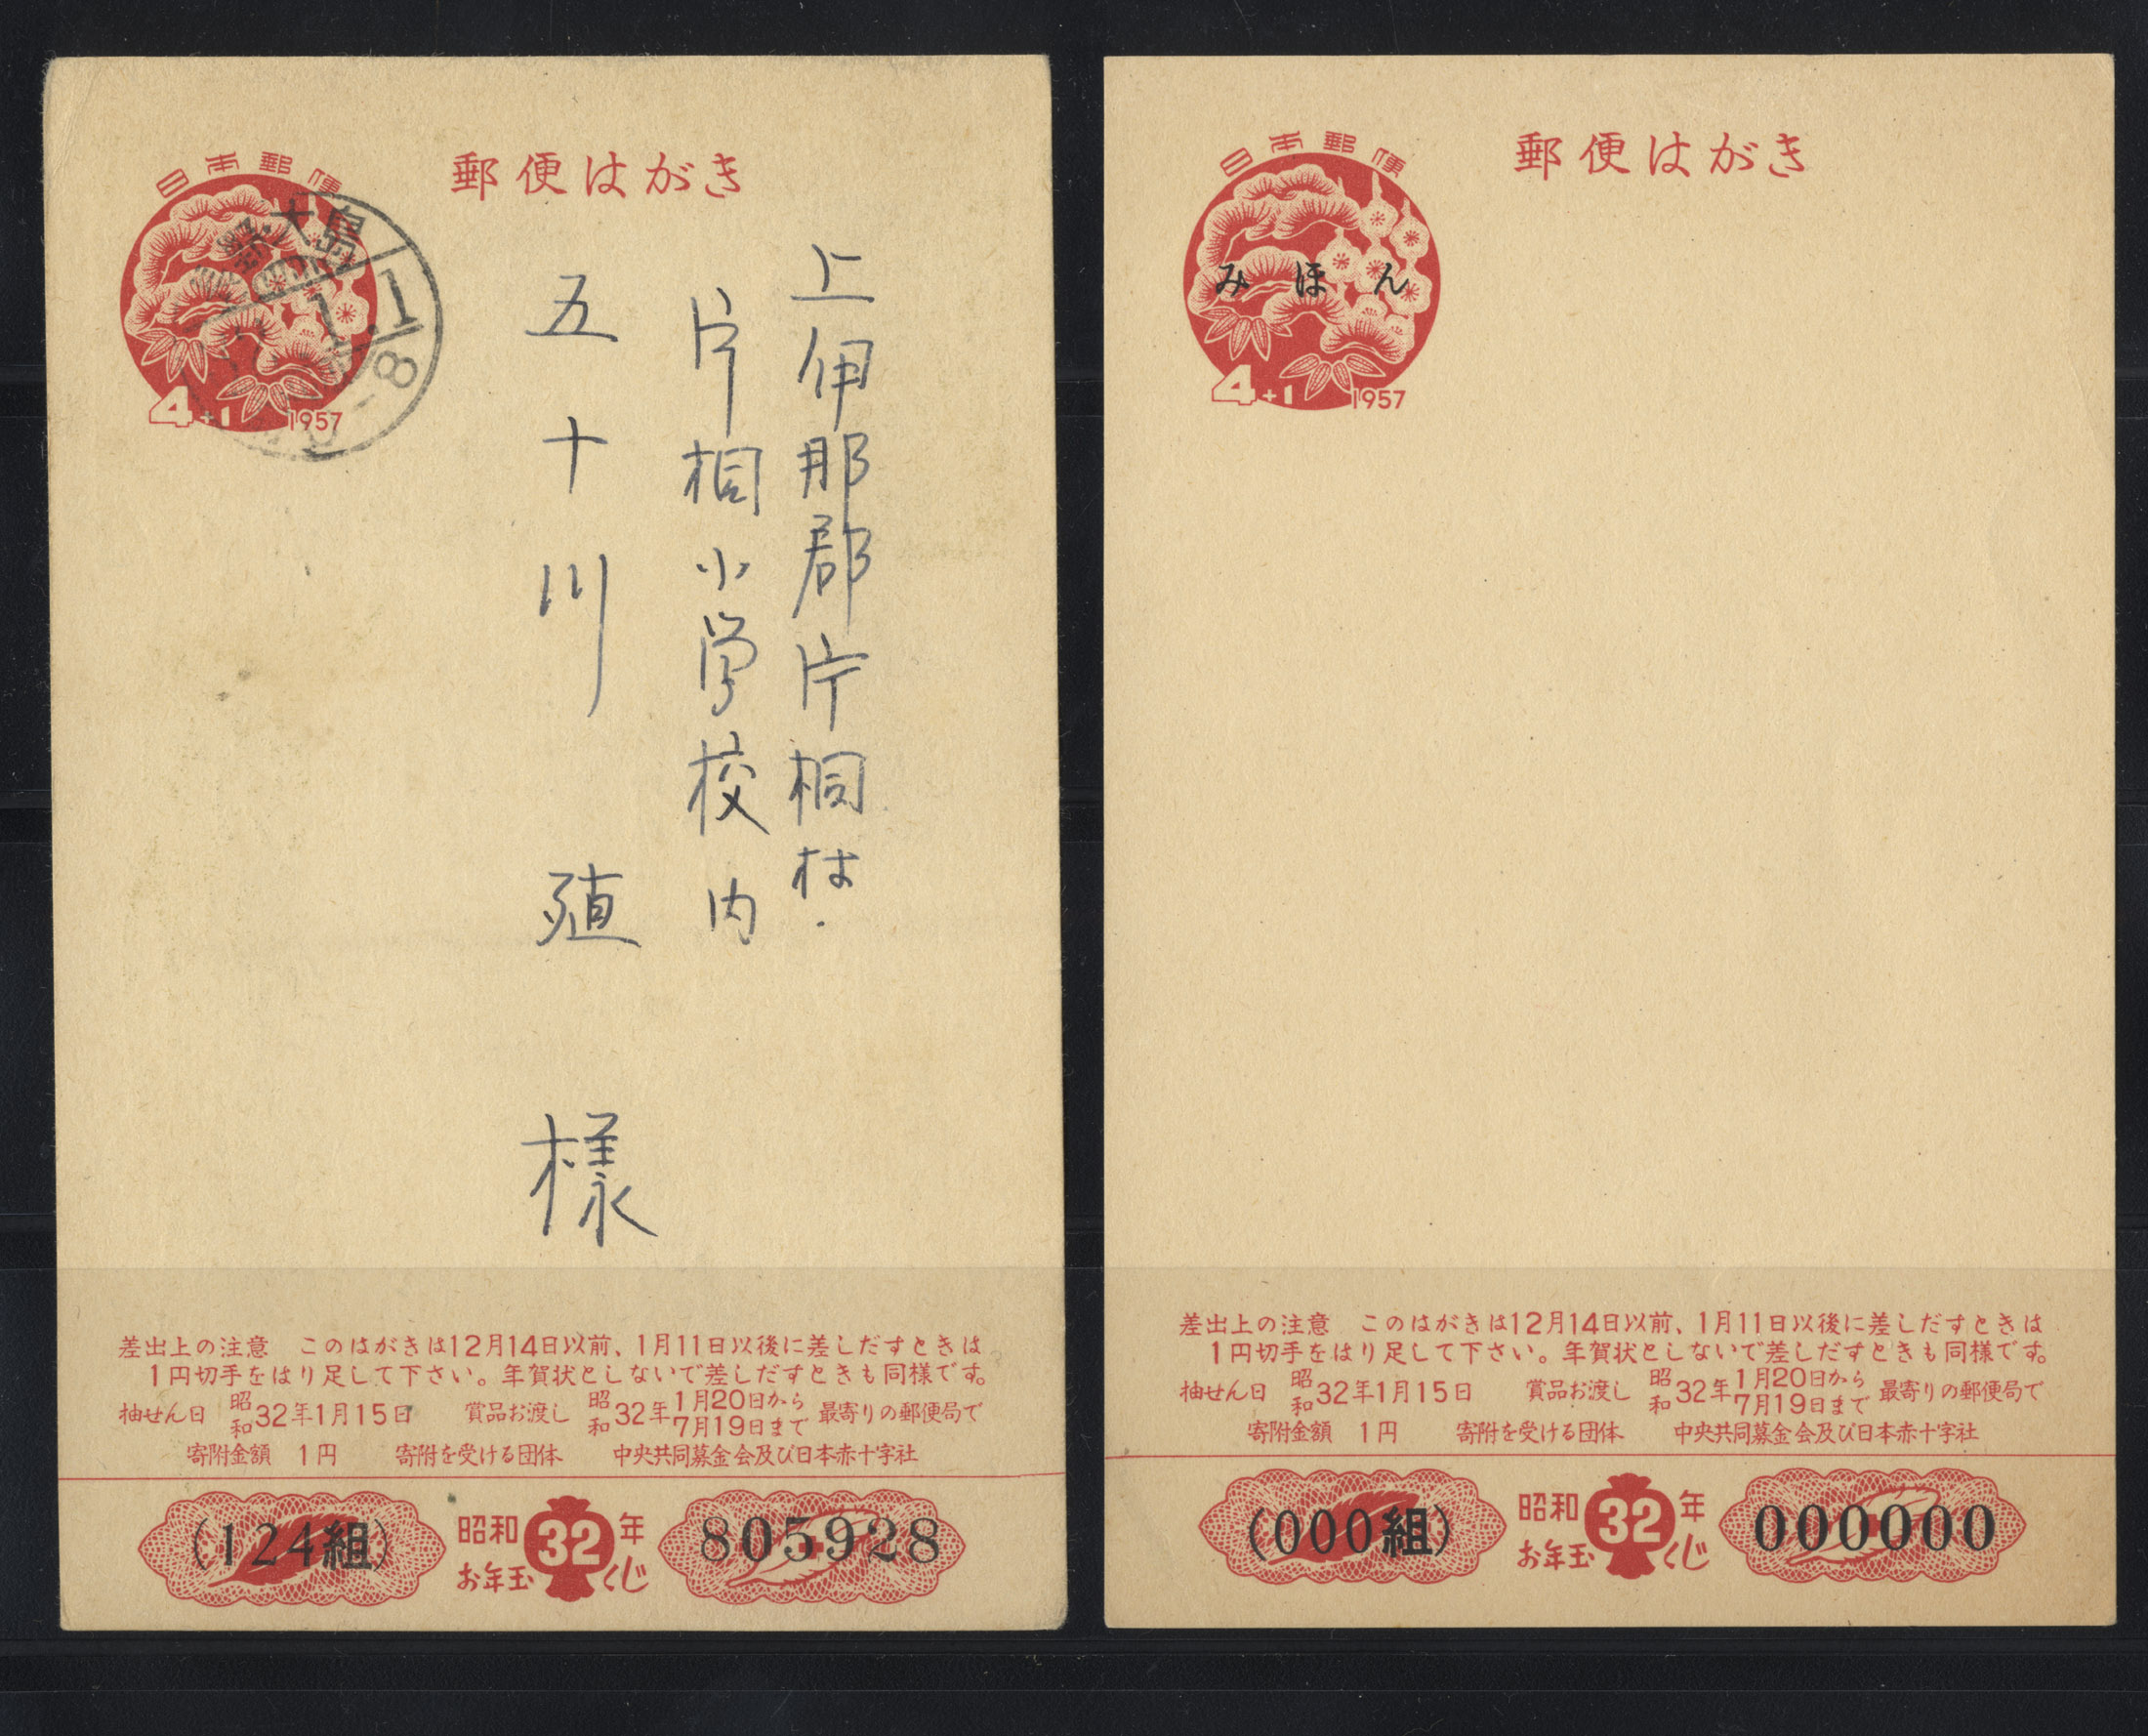 日本郵便
郵便はがき
大島
1.1
-8
4+1
1957
上伊那郡片桐村.
片桐小学校内
五十川 殖 様
差出上の注意 このはがきは12月14日以前、1月11日以後に差しだすときは
1円切手をはり足して下さい。年賀状としないで差しだすときも同様です。
抽せん日 昭和32年1月15日 賞品お渡し 昭和32年1月20日から7月19日まで 最寄りの郵便局で
寄附金額 1円 寄附を受ける団体 中央共同募金会及び日本赤十字社
(124組)
昭和32年
お年玉くじ
805928
日本郵便
郵便はがき
みほん
4+1
1957
差出上の注意 このはがきは12月14日以前、1月11日以後に差しだすときは
1円切手をはり足して下さい。年賀状としないで差しだすときも同様です。
抽せん日 昭和32年1月15日 賞品お渡し 昭和32年1月20日から7月19日まで 最寄りの郵便局で
寄附金額 1円 寄附を受ける団体 中央共同募金会及び日本赤十字社
(000組)
昭和32年
お年玉くじ
000000